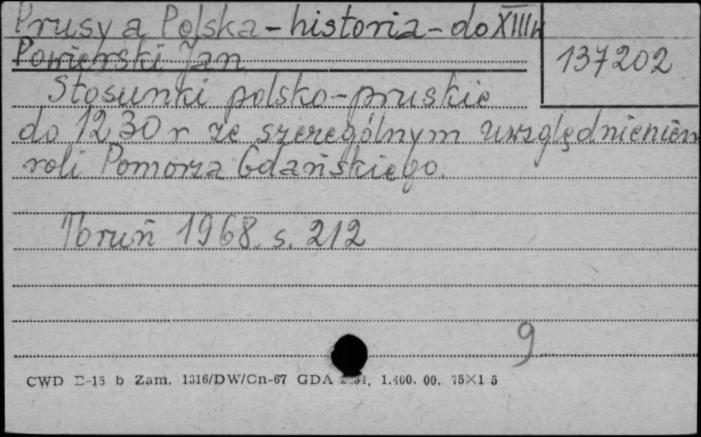 Prusy a Polska - historia - do XIII w
137202
Powierski Jan
Stosunki polsko-pruskie
do 1230 r ze szczególnym uwzględnieniem
roli Pomorza Gdańskiego.
Toruń 1968. s. 212
9
CWD D-15 b Zam. 1316/DW/Gn-67 GDA 1.400.00. 75×1 5